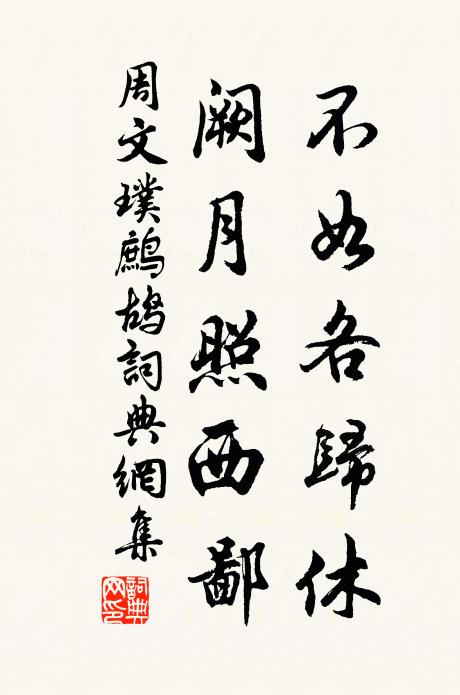 不如各歸休
闕月照西鄙
周文璞鷓鴣詞典網集
詞典網印